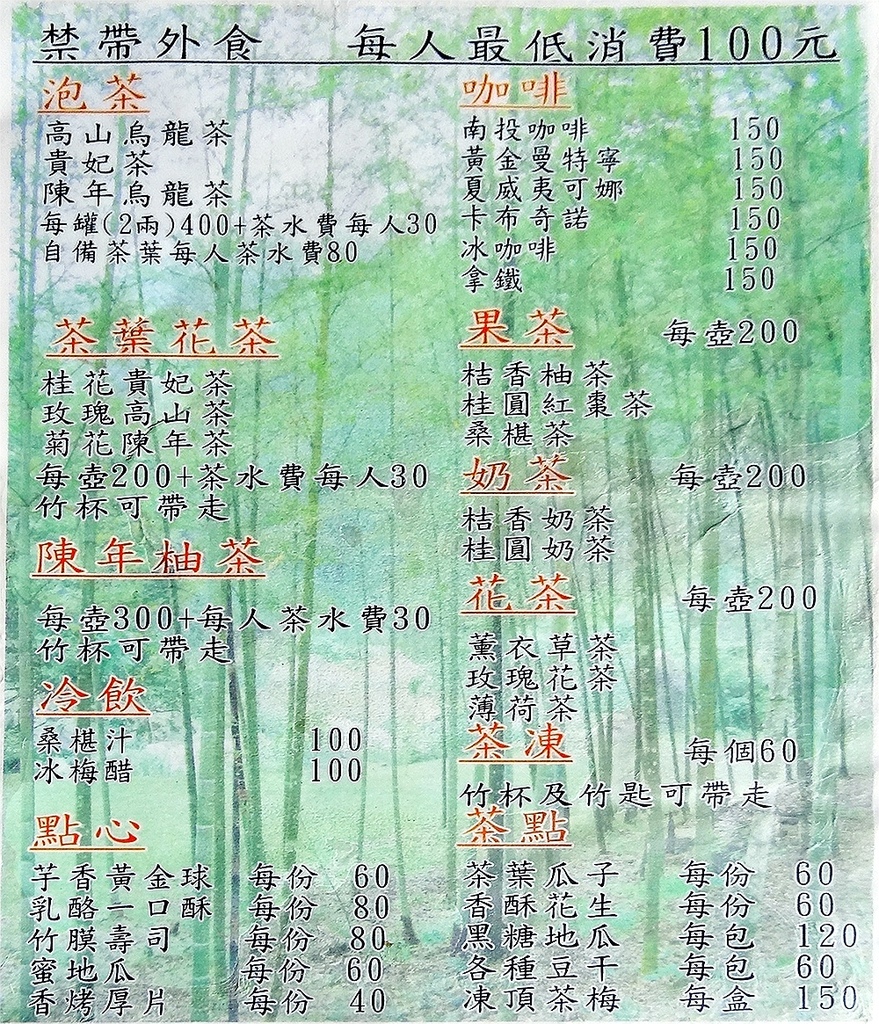 禁帶外食 每人最低消費100元
泡茶
高山烏龍茶
貴妃茶
陳年烏龍茶
每罐(2兩)400+茶水費每人30
自備茶葉每人茶水費80
茶葉花茶
桂花貴妃茶
玫瑰高山茶
菊花陳年茶
每壺200+茶水費每人30
竹杯可帶走
陳年柚茶
每壺300+每人茶水費30
竹杯可帶走
冷飲
桑椹汁 100
冰梅醋 100
點心
芋香黃金球 每份 60
乳酪一口酥 每份 80
竹膜壽司 每份 80
蜜地瓜 每份 60
香烤厚片 每份 40
咖啡
南投咖啡 150
黃金曼特寧 150
夏威夷可娜 150
卡布奇諾 150
冰咖啡 150
拿鐵 150
果茶 每壺200
桔香柚茶
桂圓紅棗茶
桑椹茶
奶茶 每壺200
桔香奶茶
桂圓奶茶
花茶 每壺200
薰衣草茶
玫瑰花茶
薄荷茶
茶凍 每個60
竹杯及竹匙可帶走
茶點
茶葉瓜子 每份 60
香酥花生 每份 60
黑糖地瓜 每包 120
各種豆干 每包 60
凍頂茶梅 每盒 150